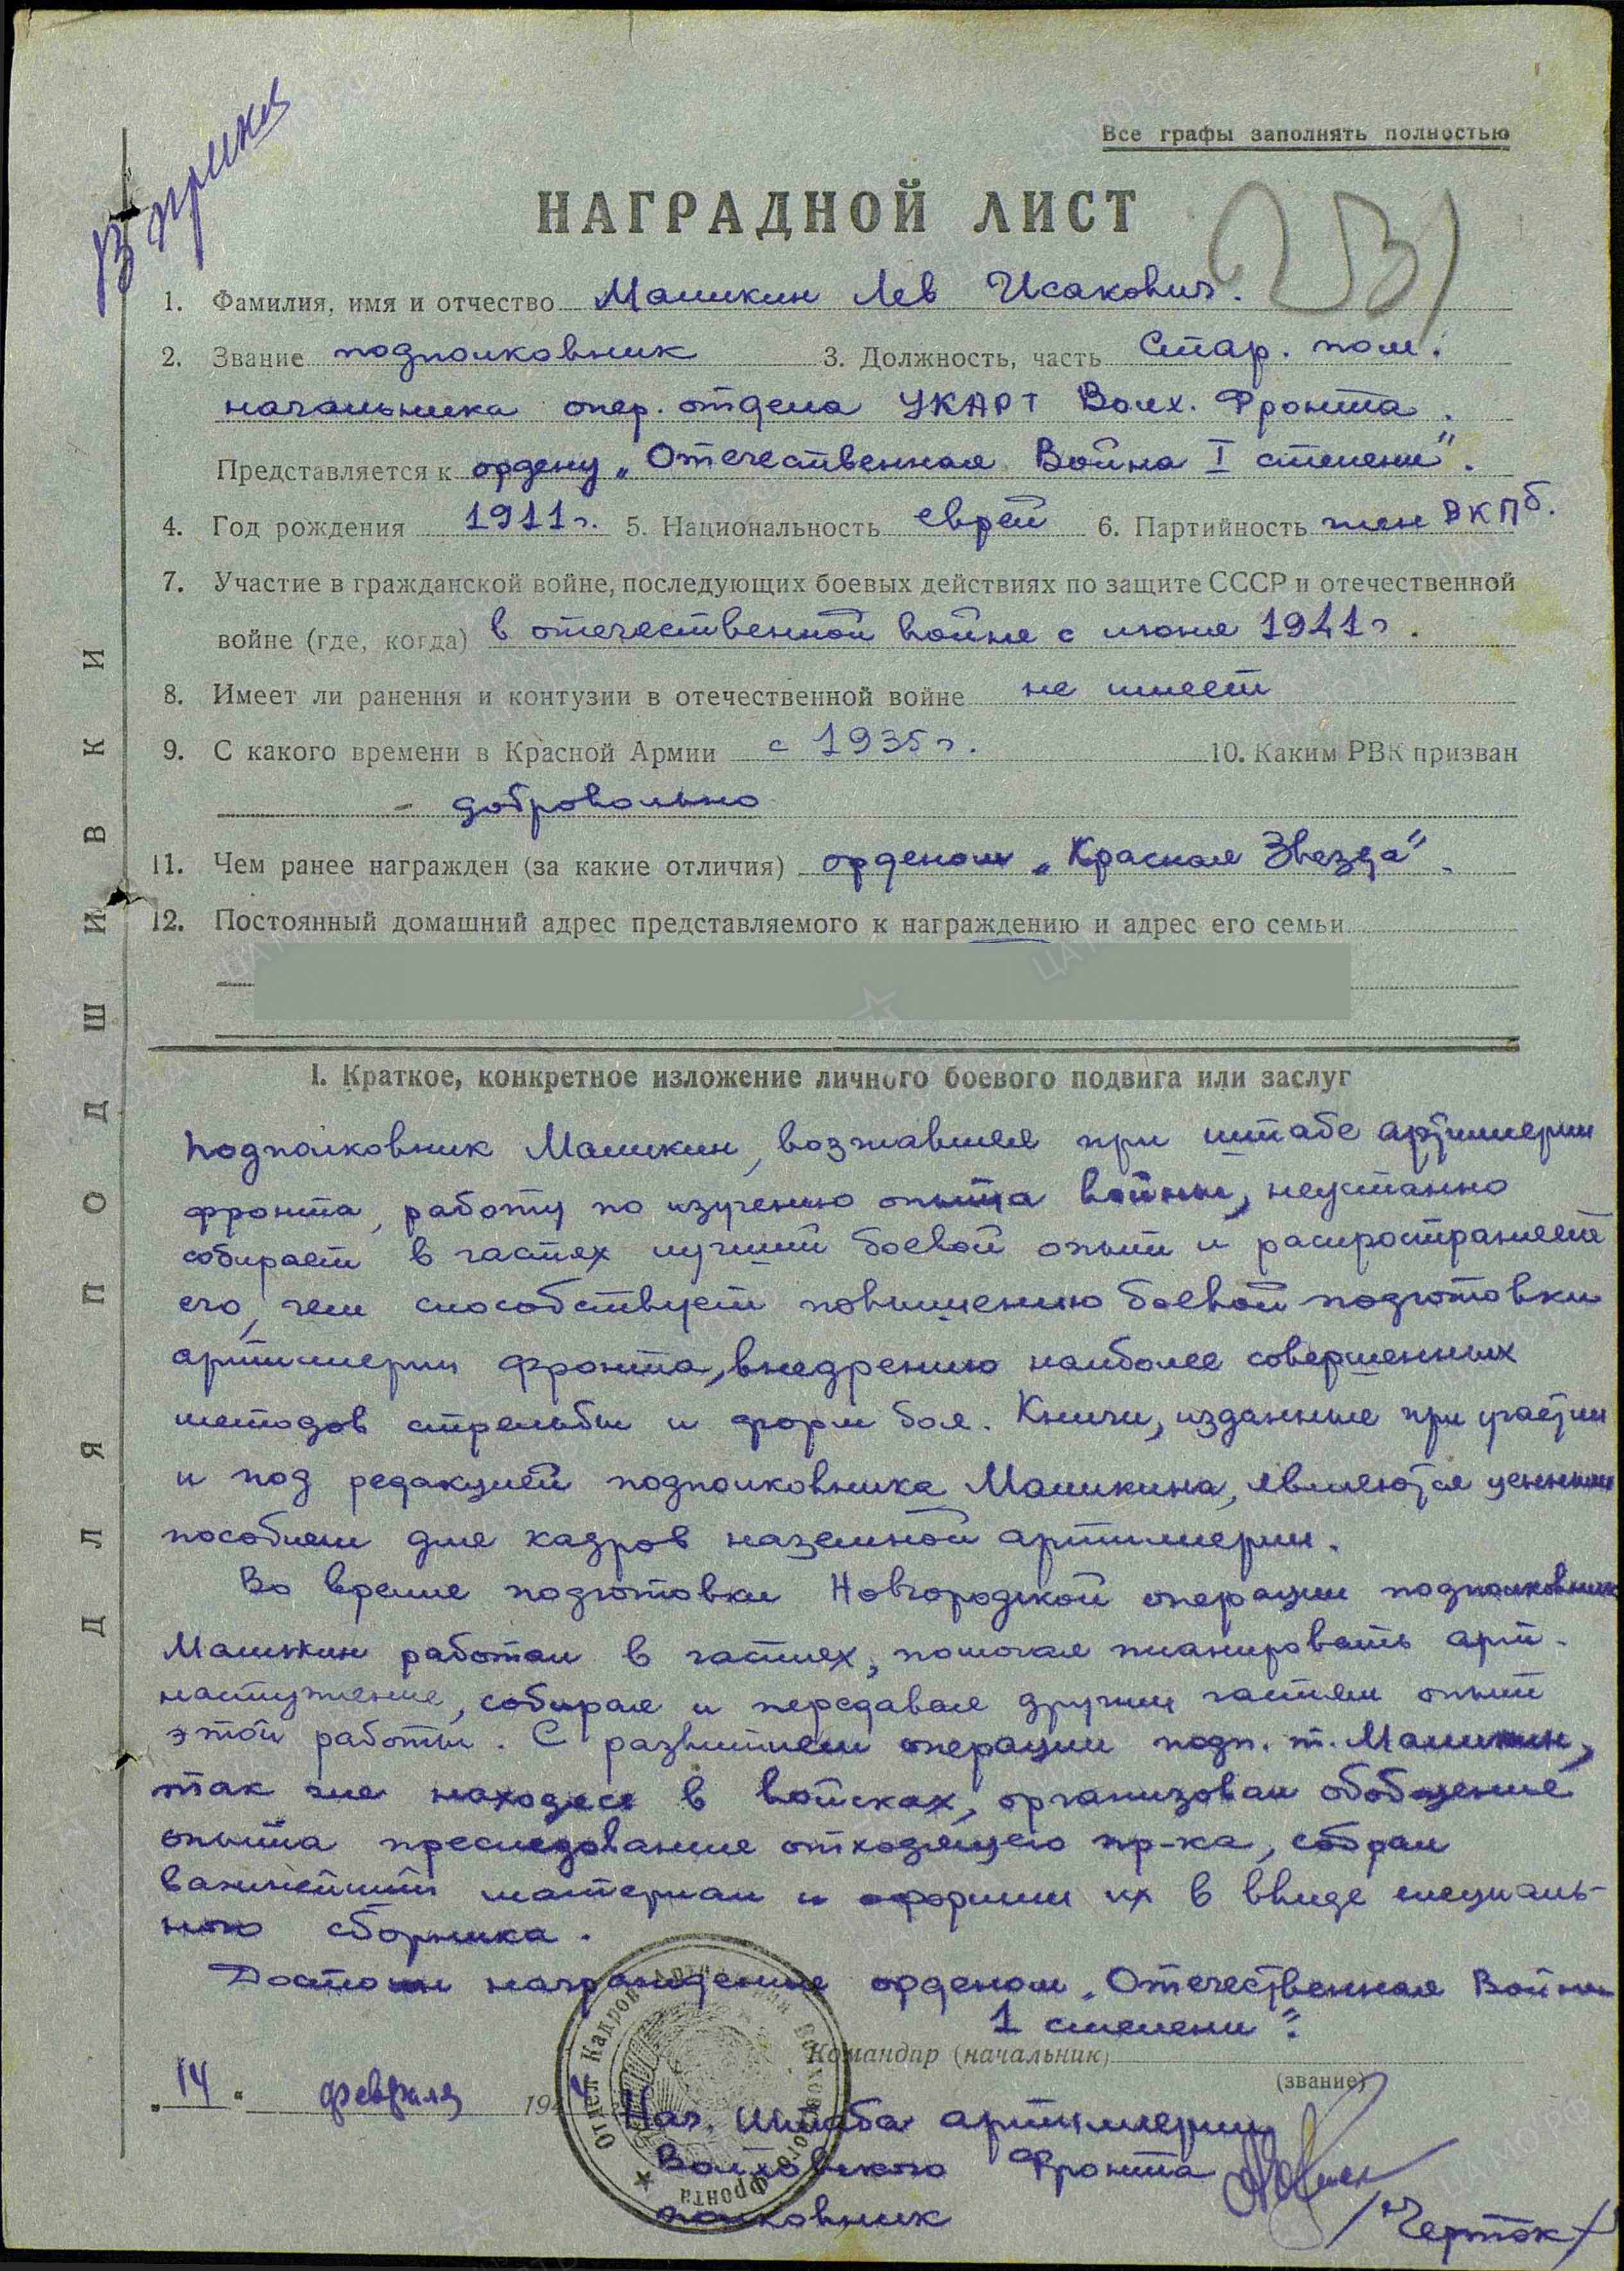 В приказ
Все графы заполнять полностью
НАГРАДНОЙ ЛИСТ
1. Фамилия, имя и отчество Машкин Лев Исакович.
2. Звание подполковник 3. Должность, часть Стар. пом.
начальника опер. отдела УКАРТ Волх. Фронта.
Представляется к ордену „Отечественная Война I степени".
4. Год рождения 1911 г. 5. Национальность еврей 6. Партийность член ВКПб.
7. Участие в гражданской войне, последующих боевых действиях по защите СССР и отечественной
войне (где, когда) в отечественной войне с июня 1941 г.
8. Имеет ли ранения и контузии в отечественной войне не имеет
9. С какого времени в Красной Армии с 1935 г. 10. Каким РВК призван
- добровольно
11. Чем ранее награжден (за какие отличия) орденом „Красная Звезда".
12. Постоянный домашний адрес представляемого к награждению и адрес его семьи
ДЛЯ ПОДШИВКИ
I. Краткое, конкретное изложение личного боевого подвига или заслуг
Подполковник Машкин, возглавляя при штабе артиллерии
фронта, работу по изучению опыта войны, неустанно
собирает в частях лучший боевой опыт и распространяет
его, чем способствует повышению боевой подготовки
артиллерии фронта, внедрению наиболее совершенных
методов стрельбы и форм боя. Книги, изданные при участии
и под редакцией подполковника Машкина, являются ценным
пособием для кадров наземной артиллерии.
Во время подготовки Новгородской операции подполковник
Машкин работал в частях, помогая планировать арт-
наступление, собирая и передавая другим частям опыт
этой работы. С развитием операции подп. т. Машкин,
так же находясь в войсках, организовал обобщение
опыта преследования отходящего пр-ка, собрал
важнейший материал и оформил их в ввиде специаль-
ного сборника.
Достоин награждения орденом „Отечественная Война
1 степени".
Командир (начальник)
(звание)
„14" февраля 1944
Нач. Штаба артиллерии
Волховского Фронта
полковник
/Черток/
Отдел Кадров Артиллерии Волховского Фронта